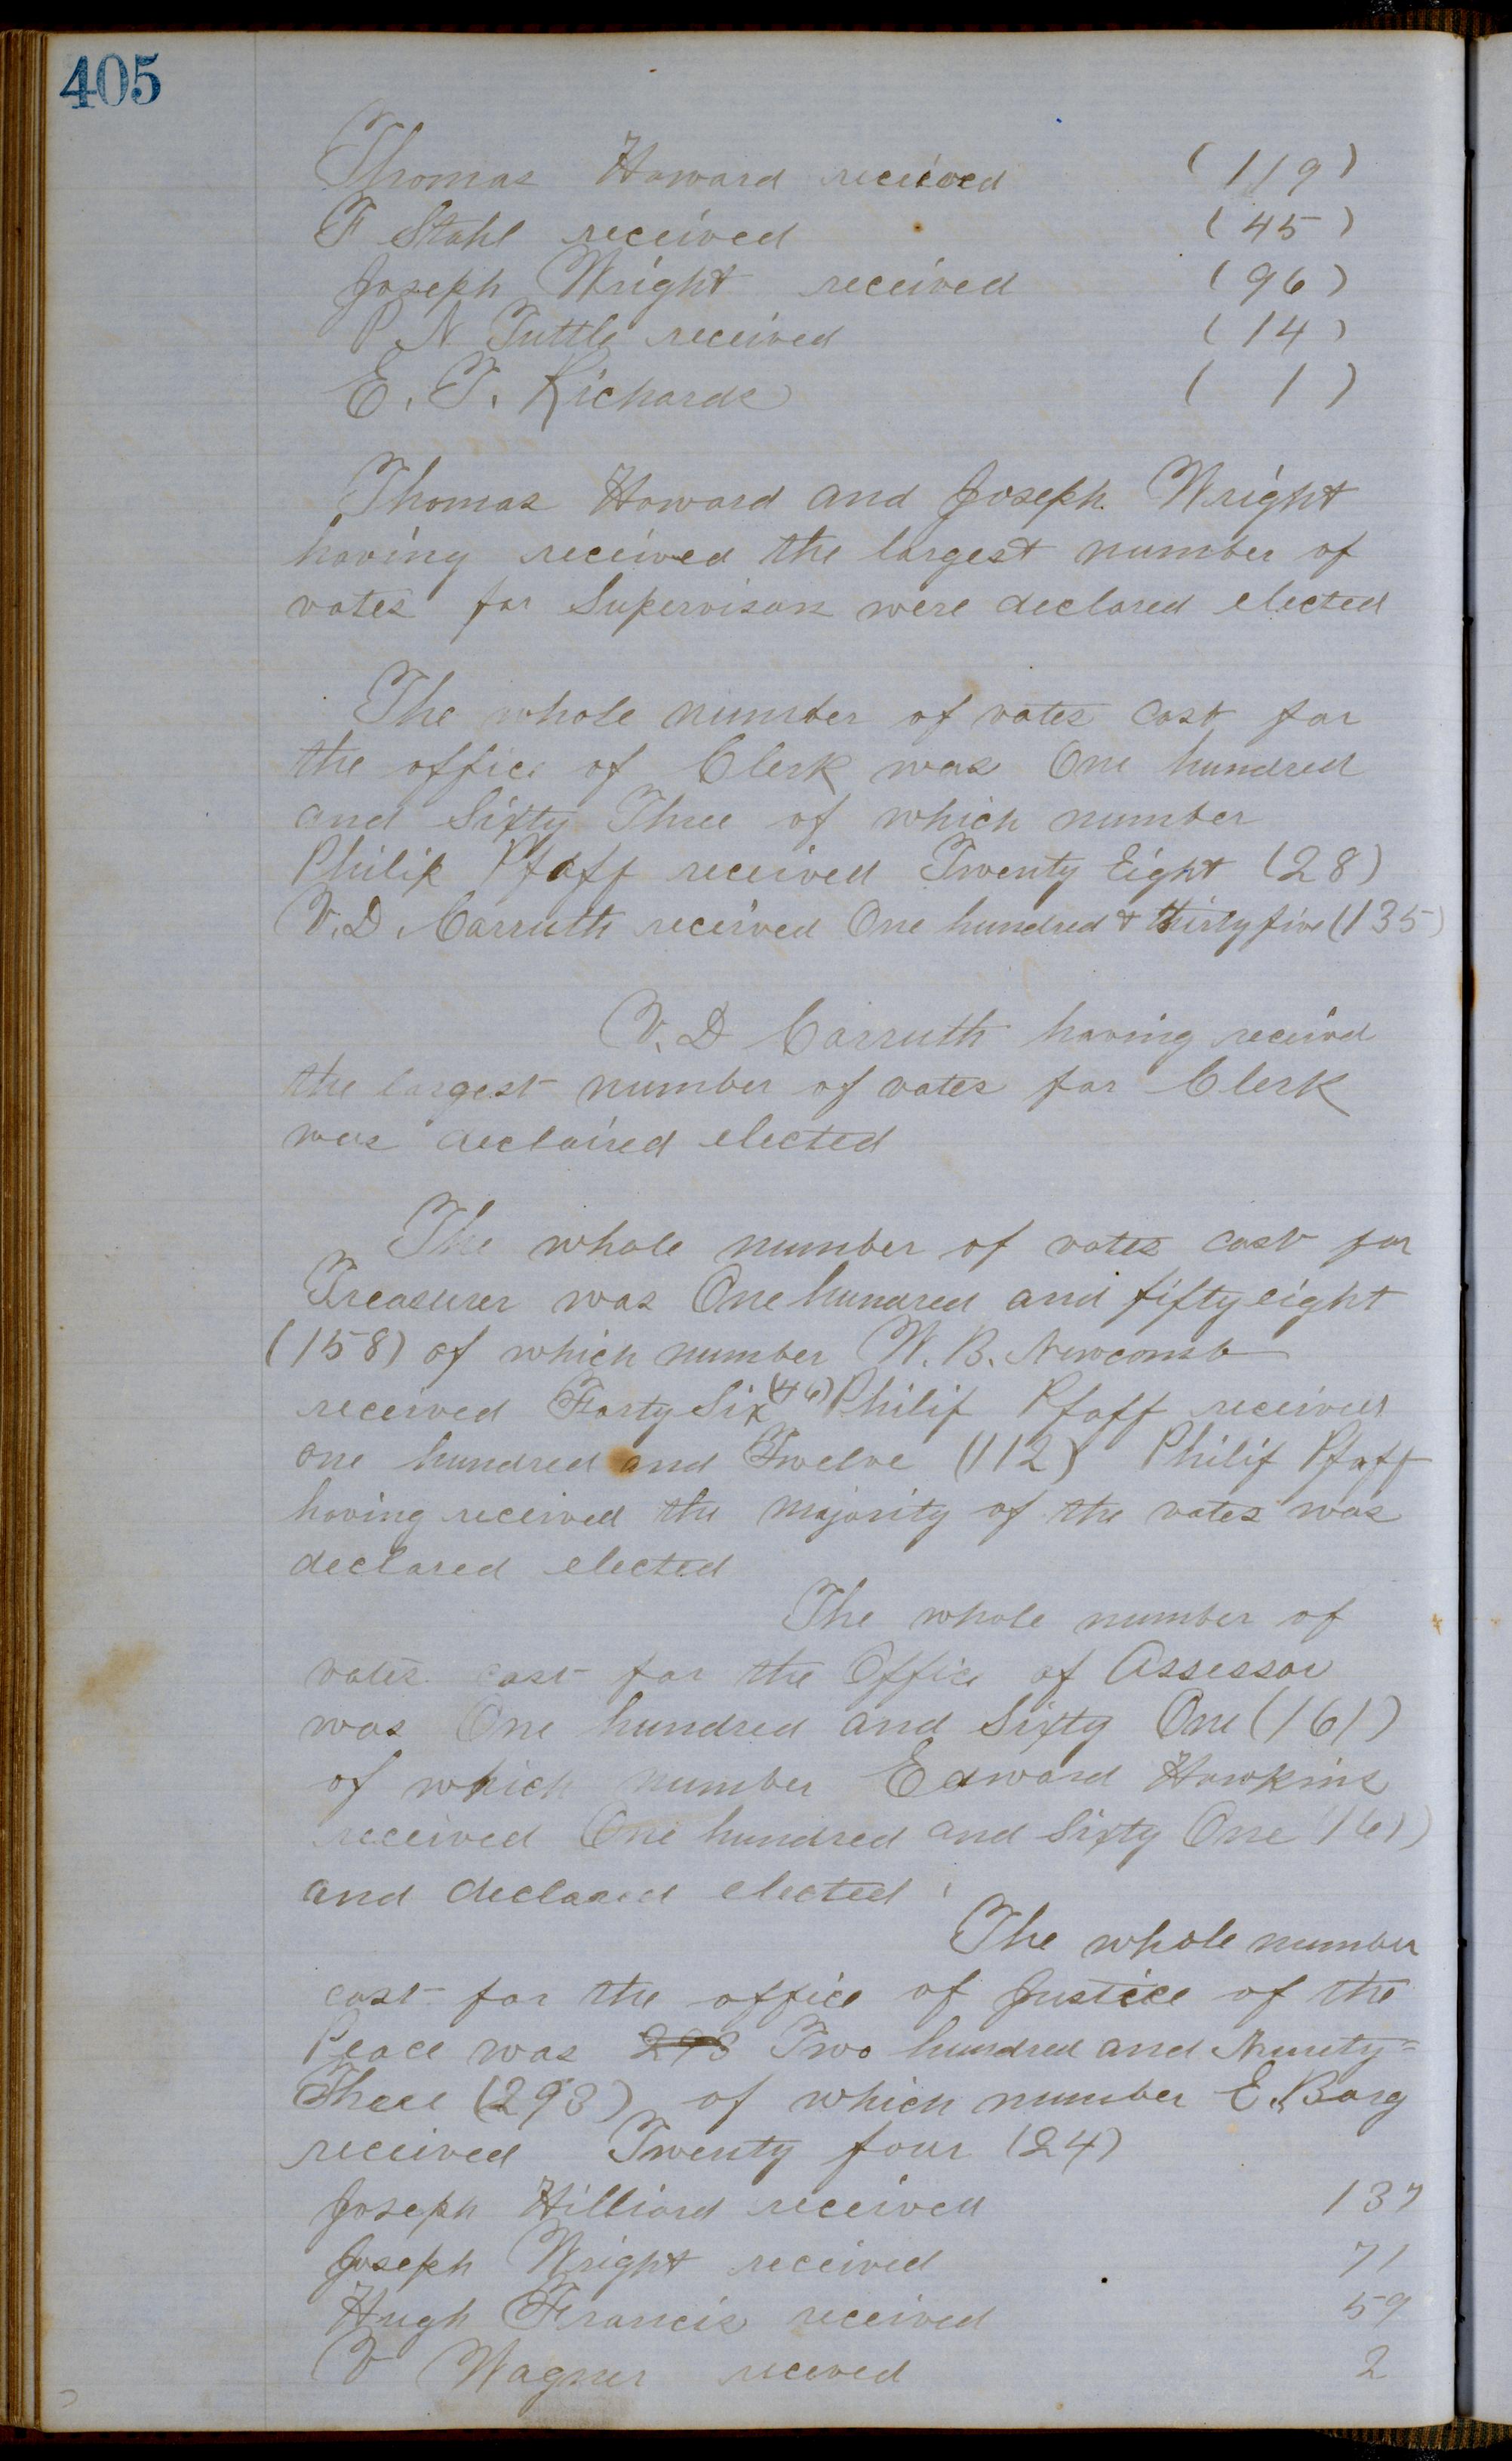 405
Thomas Howard received (119)
F Stahl received (45)
Joseph Wright received (96)
P N Tuttle received (14)
E. T. Richards (1)
Thomas Howard and Joseph Wright
having received the largest number of
votes for Supervisors were declared elected
The whole number of votes cast for
the office of Clerk was One hundred
and Sixty Three of which number
Philip Pfaff received Twenty Eight (28)
V. D. Carruth received One hundred & thirty five (135)
V. D Carruth having received
the largest number of votes for Clerk
was declaired elected
The whole number of votes cast for
Treasurer was One hundred and fifty eight
(158) of which number W. B. Newcomb
received Forty Six (46) Philip Pfaff received
one hundred and Twelve (112) Philip Pfaff
having received the majority of the votes was
declared elected
The whole number of
votes cast for the Office of Assessor
was One hundred and Sixty One (161)
of which number Edward Hawkins
received One hundred and Sixty One 161)
and declared elected
The whole number
cast for the office of Justice of the
Peace was 293 Two hundred and Ninety=
Three (293) of which number E. Borg
received Twenty four (24)
Joseph Hilliard received 137
Joseph Wright received 71
Hugh Francis received 59
V Wagner receved 2